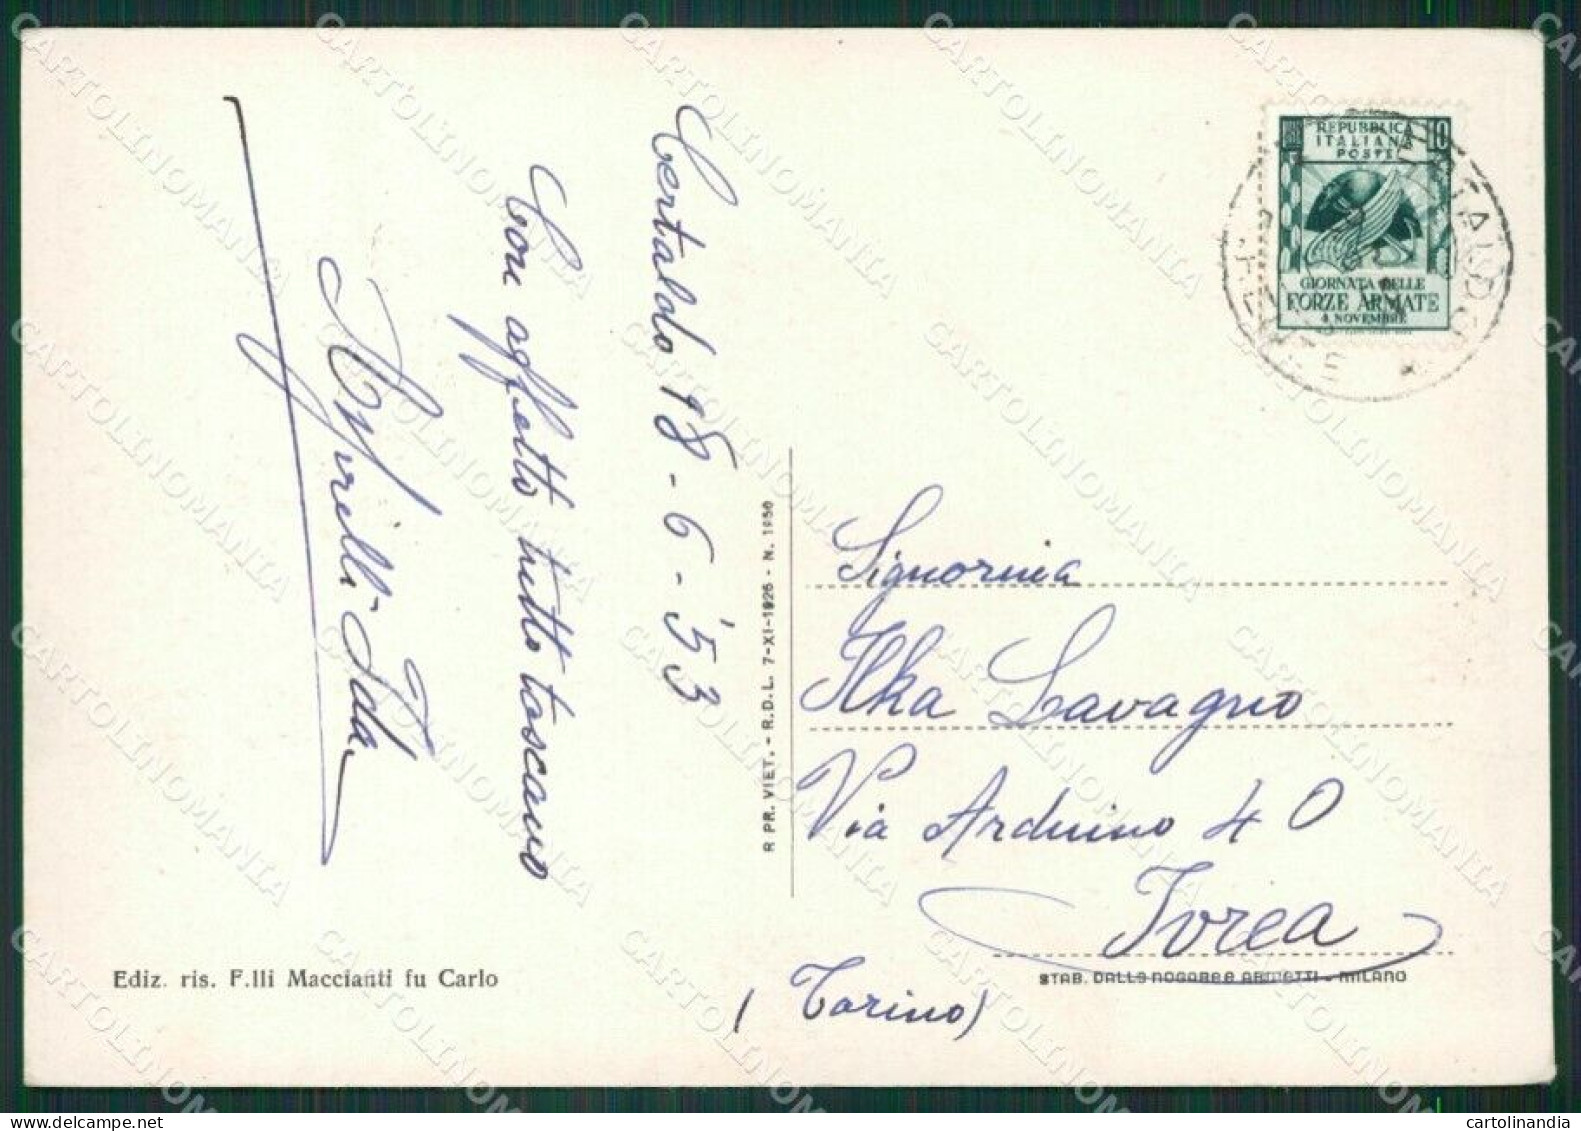 Certaldo 18-6-'53
Con affetto tutto toscano
Ida
Signorina
Ilka Lavagno
Via Arduino 40
Ivrea
(Torino)
REPUBBLICA
ITALIANA
POSTE
10
GIORNATA DELLE
FORZE ARMATE
4 NOVEMBRE
R PR. VIET. - R.D.L. 7-XI-1925 - N. 1950
Ediz. ris. F.lli Maccianti fu Carlo
STAB. DALLE NOGARE E ARMETTI - MILANO
CARTOLINOMANIA
cartolinandia